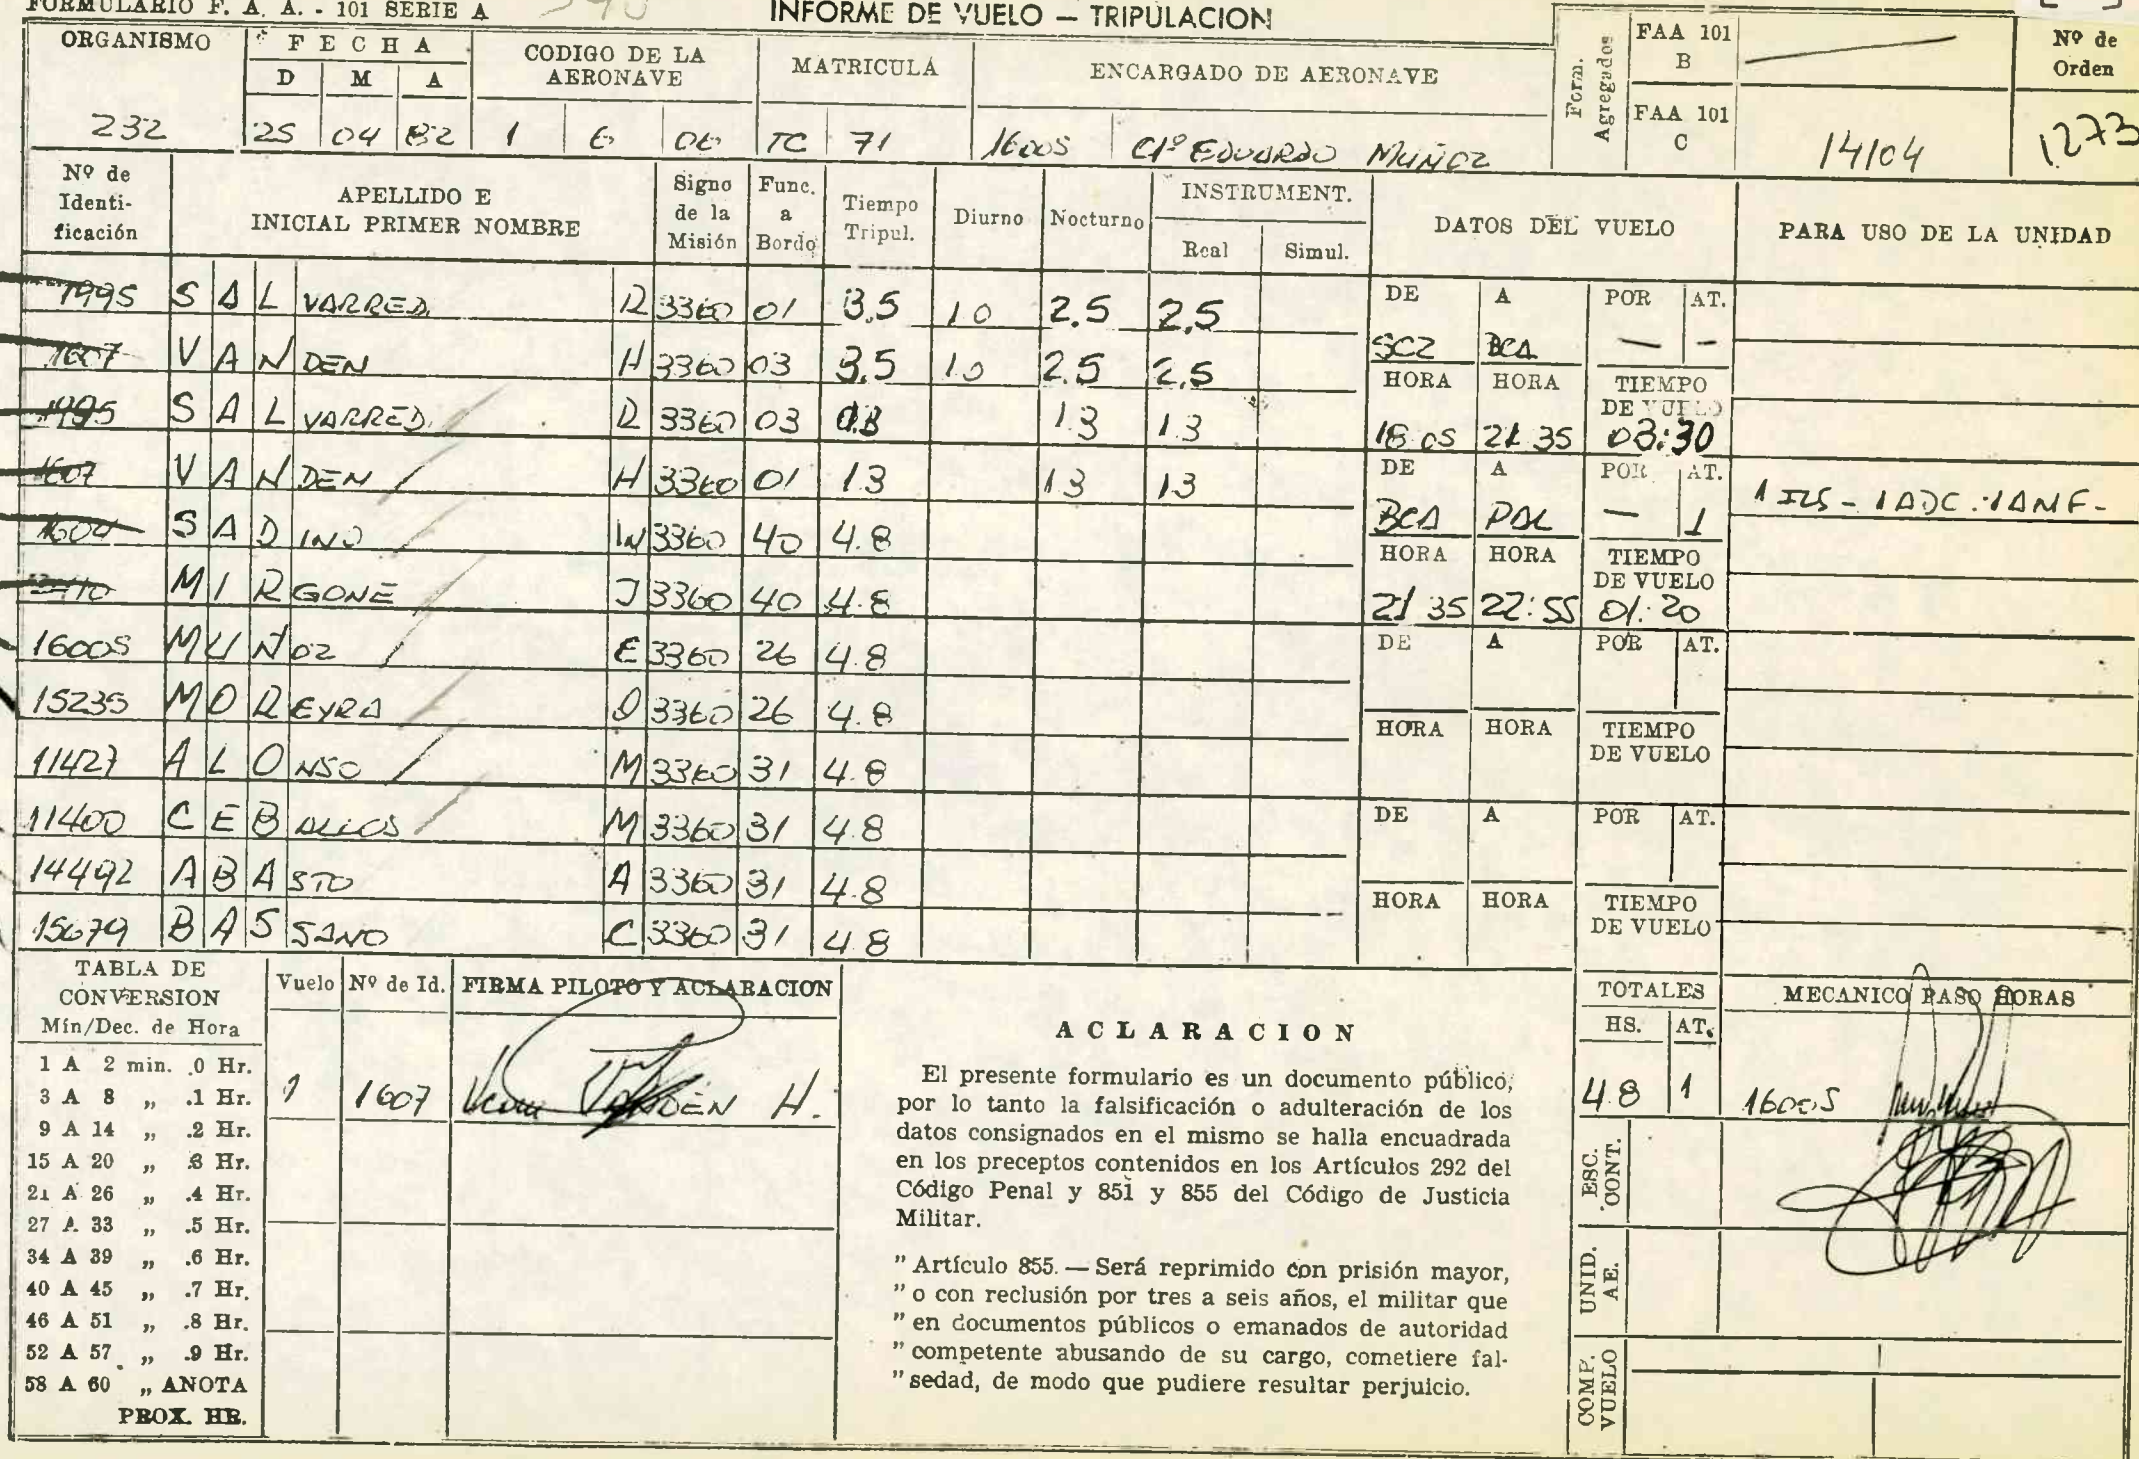 FORMULARIO F. A. A. - 101 SERIE A
INFORME DE VUELO — TRIPULACION
ORGANISMO FECHA CODIGO DE LA AERONAVE MATRICULA ENCARGADO DE AERONAVE Form. Agregados FAA 101 B Nº de Orden
D M A
FAA 101 C 14104 1273
232 25 04 82 1 6 06 TC 71 16005 C1º EDUARDO MUÑOZ
Nº de Identificación APELLIDO E INICIAL PRIMER NOMBRE Signo de la Misión Func. a Bordo Tiempo Tripul. Diurno Nocturno INSTRUMENT. Real Simul. DATOS DEL VUELO PARA USO DE LA UNIDAD
1995 SALVARRED. R 3360 01 3.5 1.0 2.5 2.5
1607 VANDEN H 3360 03 3.5 1.0 2.5 2.5
1995 SALVARRED. R 3360 03 1.3 1.3
1607 VANDEN H 3360 01 1.3 1.3 1.3
1604 SADINO W 3360 40 4.8
MIRGONE J 3360 40 4.8
16005 MUÑOZ E 3360 26 4.8
15235 MOREYRA D 3360 26 4.8
11427 ALONSO M 3360 31 4.8
11400 CEBALLOS M 3360 31 4.8
14492 ABASTO A 3360 31 4.8
15679 BASSANO C 3360 31 4.8
DE A POR AT.
SCZ BCA — —
HORA HORA TIEMPO DE VUELO
18 05 21 35 03:30
DE A POR AT.
BCA PAL — 1
1 ILS - 1 ADC. 1 ANF-
HORA HORA TIEMPO DE VUELO
21 35 22:55 01:20
DE A POR AT.
HORA HORA TIEMPO DE VUELO
DE A POR AT.
HORA HORA TIEMPO DE VUELO
TABLA DE CONVERSION
Mín/Dec. de Hora
1 A 2 min. .0 Hr.
3 A 8 „ .1 Hr.
9 A 14 „ .2 Hr.
15 A 20 „ .3 Hr.
21 A 26 „ .4 Hr.
27 A 33 „ .5 Hr.
34 A 39 „ .6 Hr.
40 A 45 „ .7 Hr.
46 A 51 „ .8 Hr.
52 A 57 „ .9 Hr.
58 A 60 „ ANOTA
PROX. HR.
Vuelo Nº de Id. FIRMA PILOTO Y ACLARACION
1 1607 VANDEN H.
ACLARACION
El presente formulario es un documento público,
por lo tanto la falsificación o adulteración de los
datos consignados en el mismo se halla encuadrada
en los preceptos contenidos en los Artículos 292 del
Código Penal y 851 y 855 del Código de Justicia
Militar.
" Artículo 855. — Será reprimido con prisión mayor,
" o con reclusión por tres a seis años, el militar que
" en documentos públicos o emanados de autoridad
" competente abusando de su cargo, cometiere fal-
" sedad, de modo que pudiere resultar perjuicio.
TOTALES MECANICO PASO HORAS
HS. AT.
4.8 1 16005
ESC. CONT.
UNID. AE.
COMP. VUELO